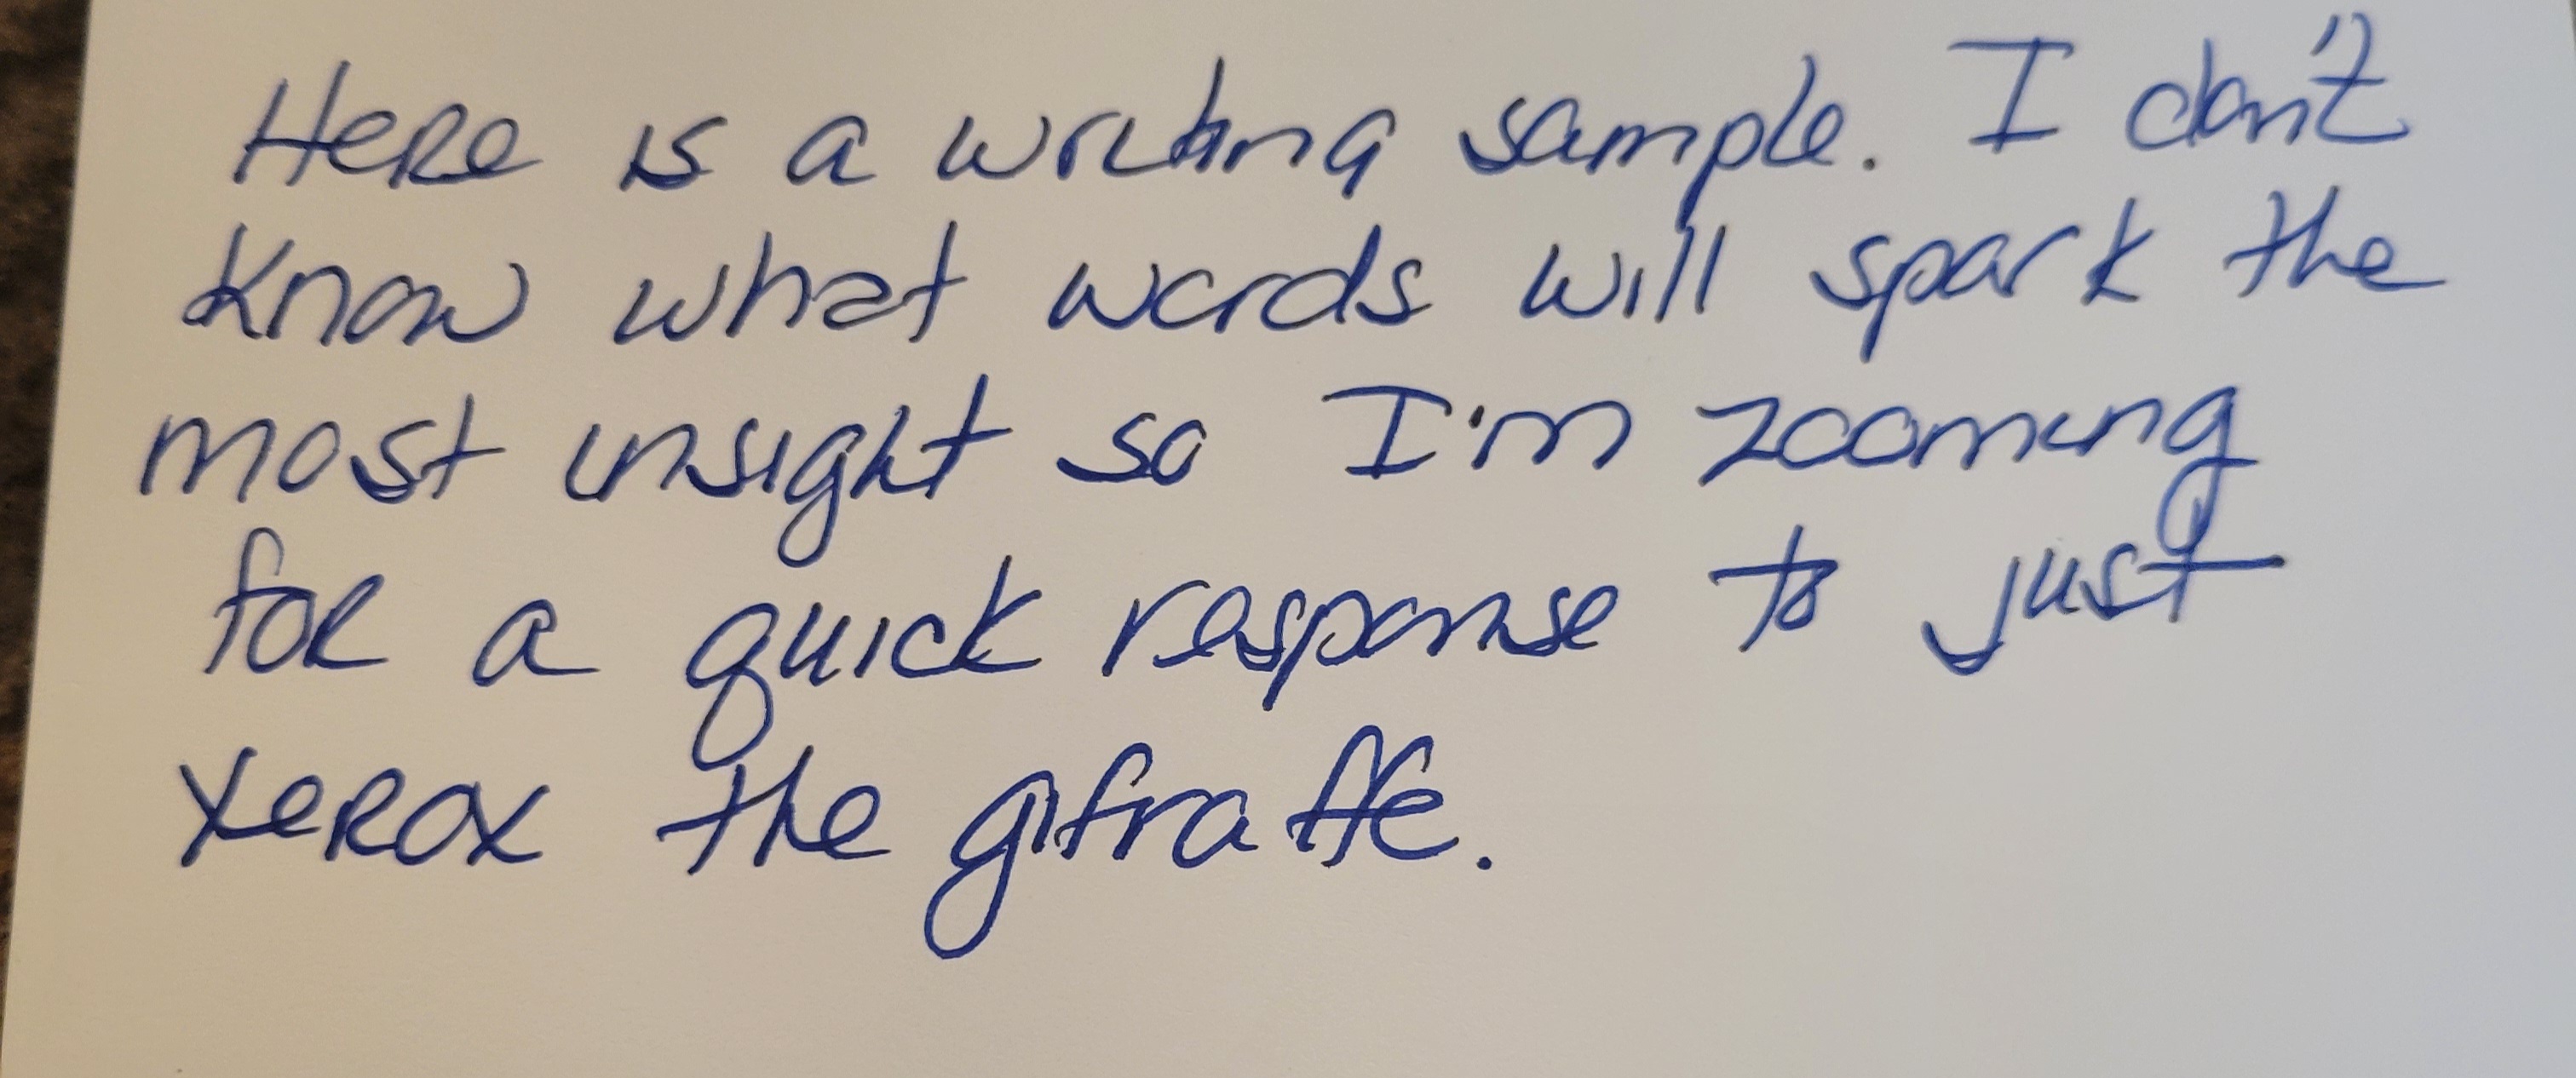 Here is a writing sample. I don't
know what words will spark the
most insight so I'm zooming
for a quick response to just
xerox the gifraffe.